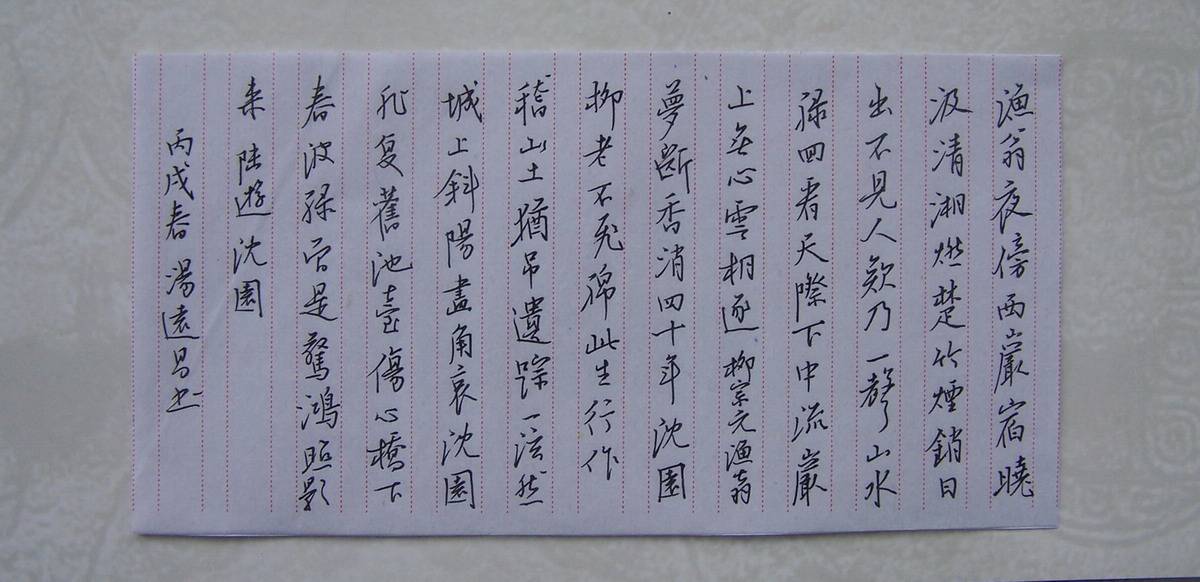 漁翁夜傍西巖宿曉
汲清湘燃楚竹煙銷日
出不見人欸乃一聲山水
綠回看天際下中流巖
上無心雲相逐柳宗元漁翁
夢斷香消四十年沈園
柳老不飛綿此生行作
稽山土猶吊遺踪一泫然
城上斜陽畫角哀沈園
非复舊池臺傷心橋下
春波綠曾是驚鴻照影
来陸遊沈園
丙戌春湯遠昌书